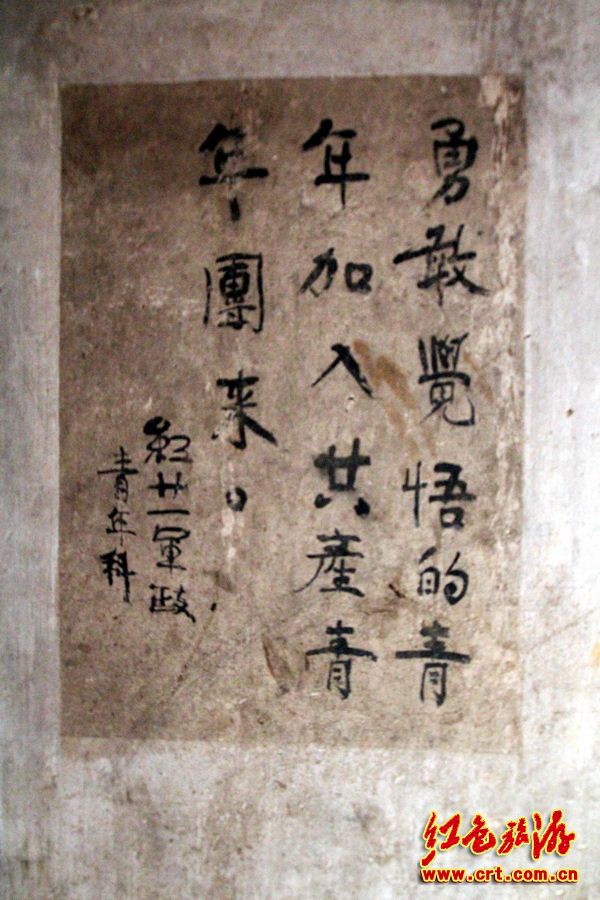 勇敢覺悟的青
年加入共產青
年團来。
紅廿一軍政
青年科
红色旅游
www.crt.com.cn